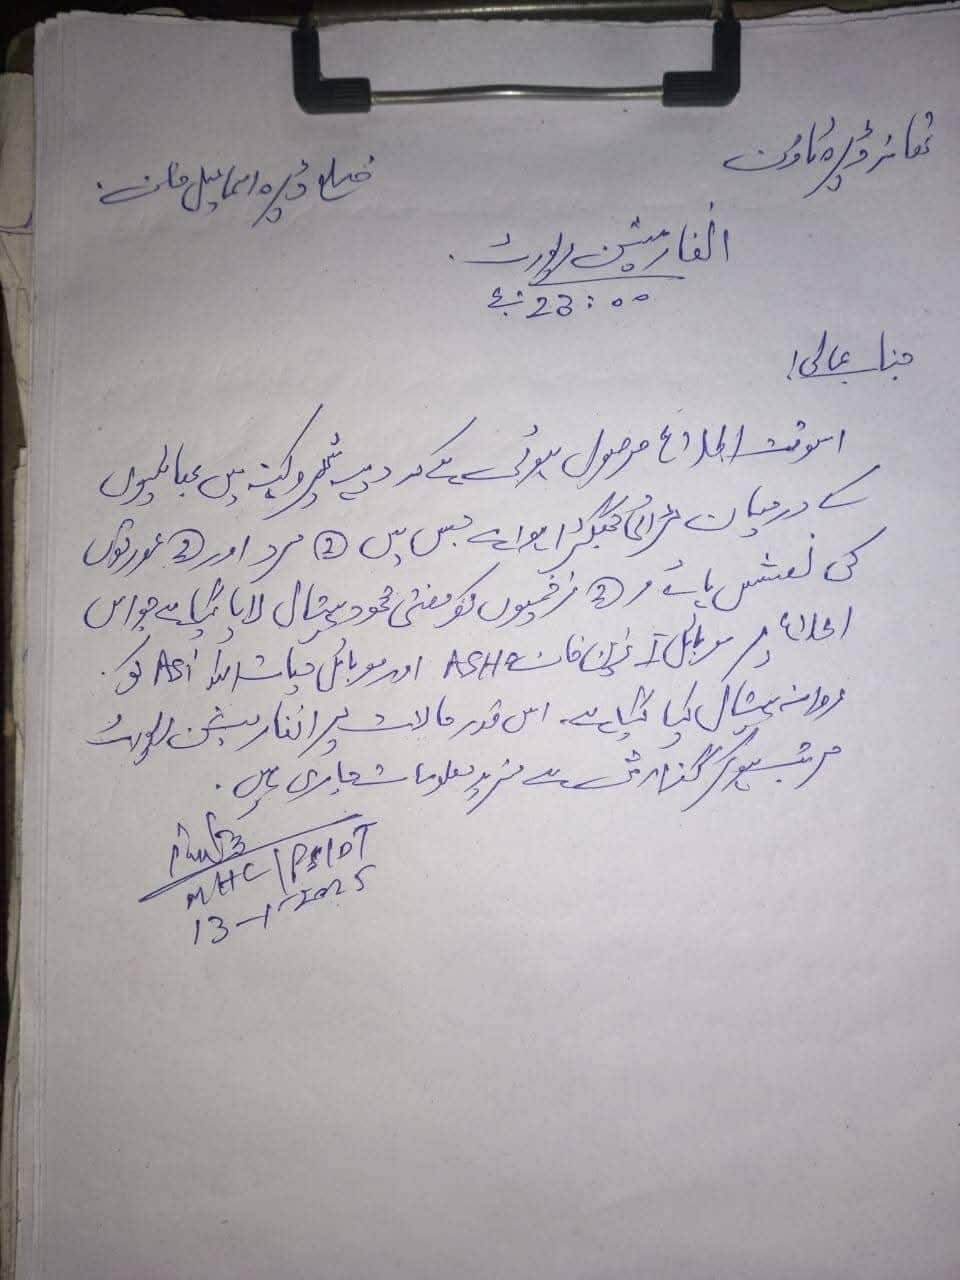 تھانہ ڈیرہ ٹاؤن
ضلع ڈیرہ اسماعیل خان۔
انفارمیشن رپورٹ۔
23:00 بجے
جناب عالی!
اسوقت اطلاع موصول ہوئی ہے کہ دیہہ میں بھائیوں
کے درمیان لڑائی جھگڑا ہوا ہے جس میں 2 مرد اور 2 عورتوں
کی نعشیں پائے و 2 زخمیوں کو مفتی محمود ہسپتال لایا گیا ہے جو اس
اطلاع پر موبائل I خان ASHO اور موبائل حیات اللہ ASI کو
روانہ ہسپتال کیا گیا ہے۔ اس قدر حالات پر انفارمیشن رپورٹ
مرتب ہو کر گزارش ہے مزید معلومات جاری ہیں۔
MHC/PS/DT
13-1-2025